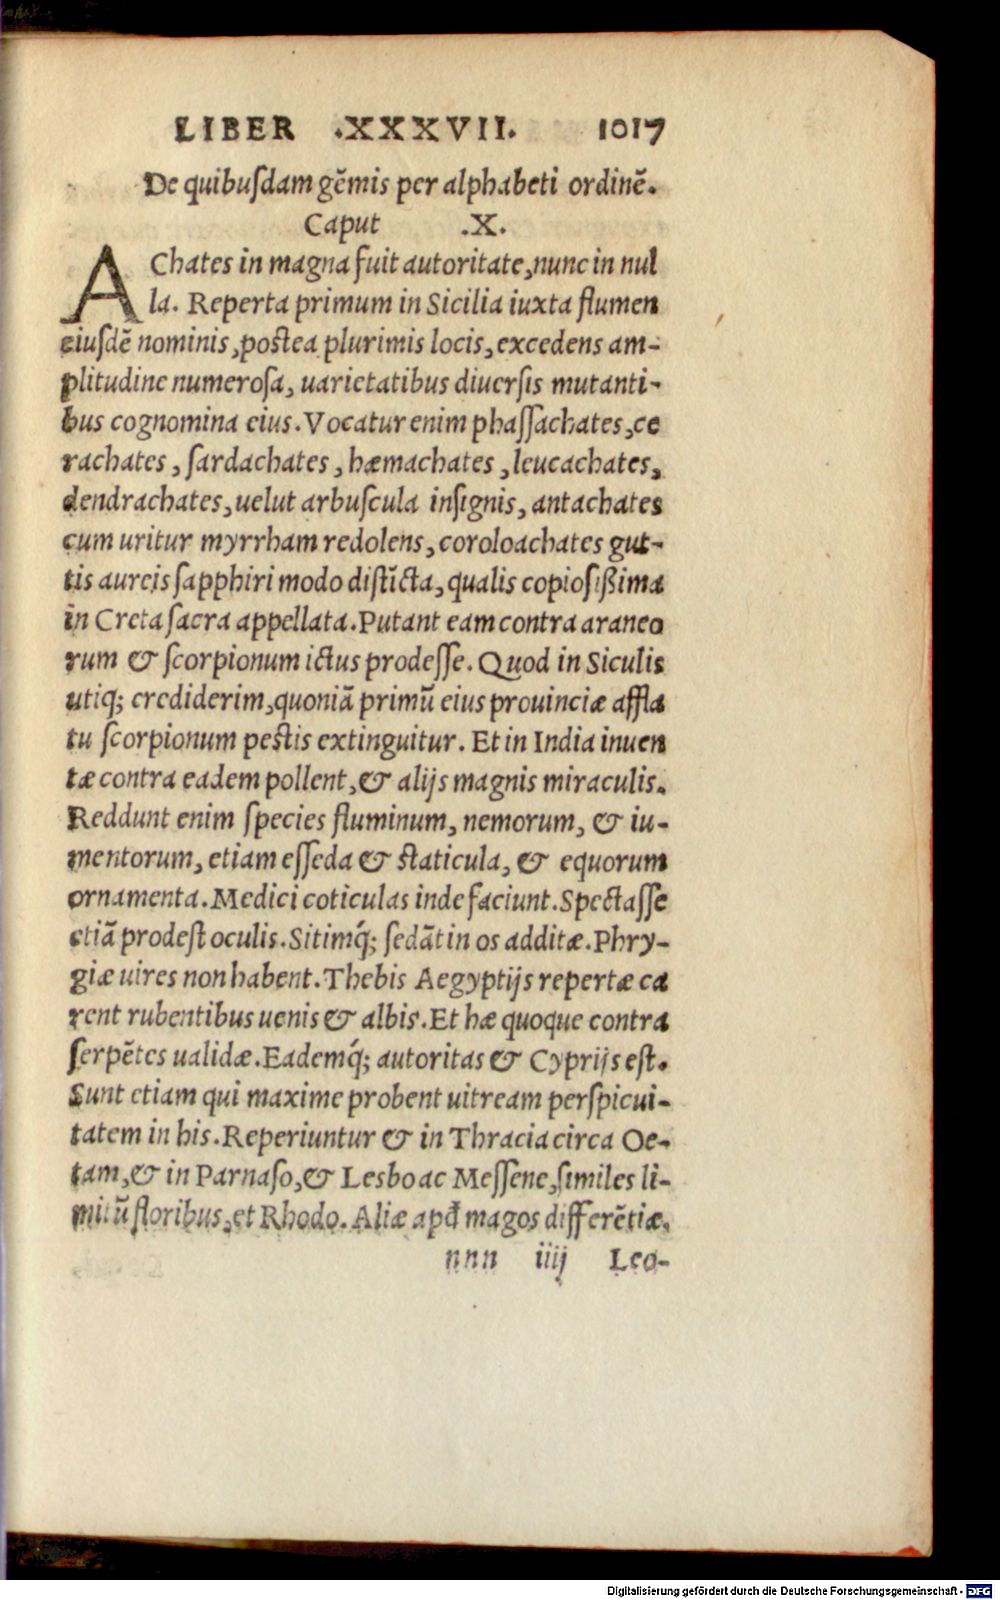 LIBER .XXXVII. 1017
De quibuſdam gẽmis per alphabeti ordinẽ.
Caput .X.
AChates in magna fuit autoritate,nunc in nul
la. Reperta primum in Sicilia iuxta flumen
eiuſdẽ nominis,poſtea plurimis locis,excedens am-
plitudine numeroſa, uarietatibus diuerſis mutanti-
bus cognomina eius.Vocatur enim phaſſachates,ce
rachates, ſardachates, hæmachates, leucachates,
dendrachates,uelut arbuſcula inſignis, antachates
cum uritur myrrham redolens,coroloachates gut-
tis aureis ſapphiri modo diſtĩcta,qualis copioſißima
in Creta ſacra appellata.Putant eam contra araneo
rum & ſcorpionum ictus prodeſſe. Quod in Siculis
utiq; crediderim,quoniã primũ eius prouinciæ affla
tu ſcorpionum peſtis extinguitur. Et in India inuen
tæ contra eadem pollent,& alijs magnis miraculis.
Reddunt enim ſpecies fluminum, nemorum, & iu-
mentorum, etiam eſſeda & ſtaticula, & equorum
ornamenta.Medici coticulas inde faciunt.Spectaſſe
etiã prodeſt oculis.Sitimq́; ſedãt in os additæ.Phry-
giæ uires non habent.Thebis Aegyptijs repertæ ca
rent rubentibus uenis & albis.Et hæ quoque contra
ſerpẽtes ualidæ.Eademq́; autoritas & Cyprijs eſt.
Sunt etiam qui maxime probent uitream perſpicui-
tatem in his.Reperiuntur & in Thracia circa Oe-
tam,& in Parnaſo,& Lesbo ac Meſſene,ſimiles li-
mitũ floribus,et Rhodo. Aliæ apđ magos differẽtiæ.
nnn iiij Leo-
Digitalisierung gefördert durch die Deutsche Forschungsgemeinschaft - DFG